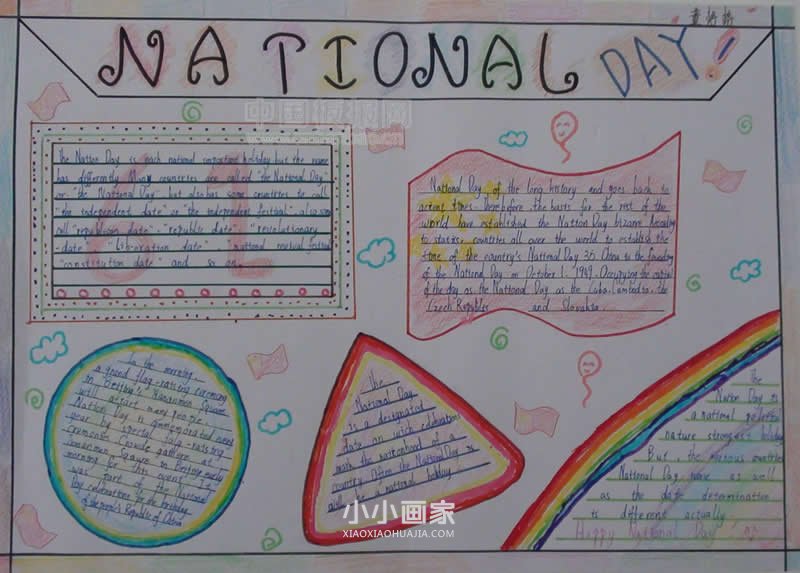 NATIONAL DAY!
The Nation Day is each national important holiday but the name
has differently Many countries are called "the National Day"
or "the National Day" but also has some countries to call
"the independent date" or "the independent festival" also some
call "republican date" "republic date" "revolutionary
date" "liberation date" "national festival
"constitution date" and so on.
National Day of the long history and goes back to
times. the basis for the rest of the
world have established the Nation Day According
to countries all over the world to establish the
of the country's National Day 35. China to the founding
of the National Day on October 1. 1949. Occupying the capital
of the day as the National Day as the Cuba, Cambodia, the
Czech Republic and Slovakia.
In the morning,
a grand flag-raising ceremony
in Beijing's Tiananmen Square
will attract many people.
Nation Day is commemorated every
year by special flag-raising
ceremonies Crowds gather at
Tiananmen Square in Beijing early
morning for this event. It
was part of the National
Day celebrations for the birthday
of the people's Republic of China
The
National Day
is a designated
date on wich celebrations
mark the nationhood of a
country. Often the National Day is
will be a national holiday.
The
Nation Day is
a national
nature strongest holiday
But, the various countries
National Day name as well
as the date determination
is different actually
Happy National Day
小小画家
XIAOXIAOHUAJIA.COM